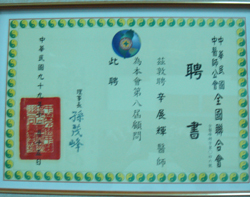 中華民國
中醫師公會
全國聯合會
聘書
茲敦聘 辛展輝 醫師
為本會第八屆顧問
此聘
理事長 孫茂峰
中華民國九十九年